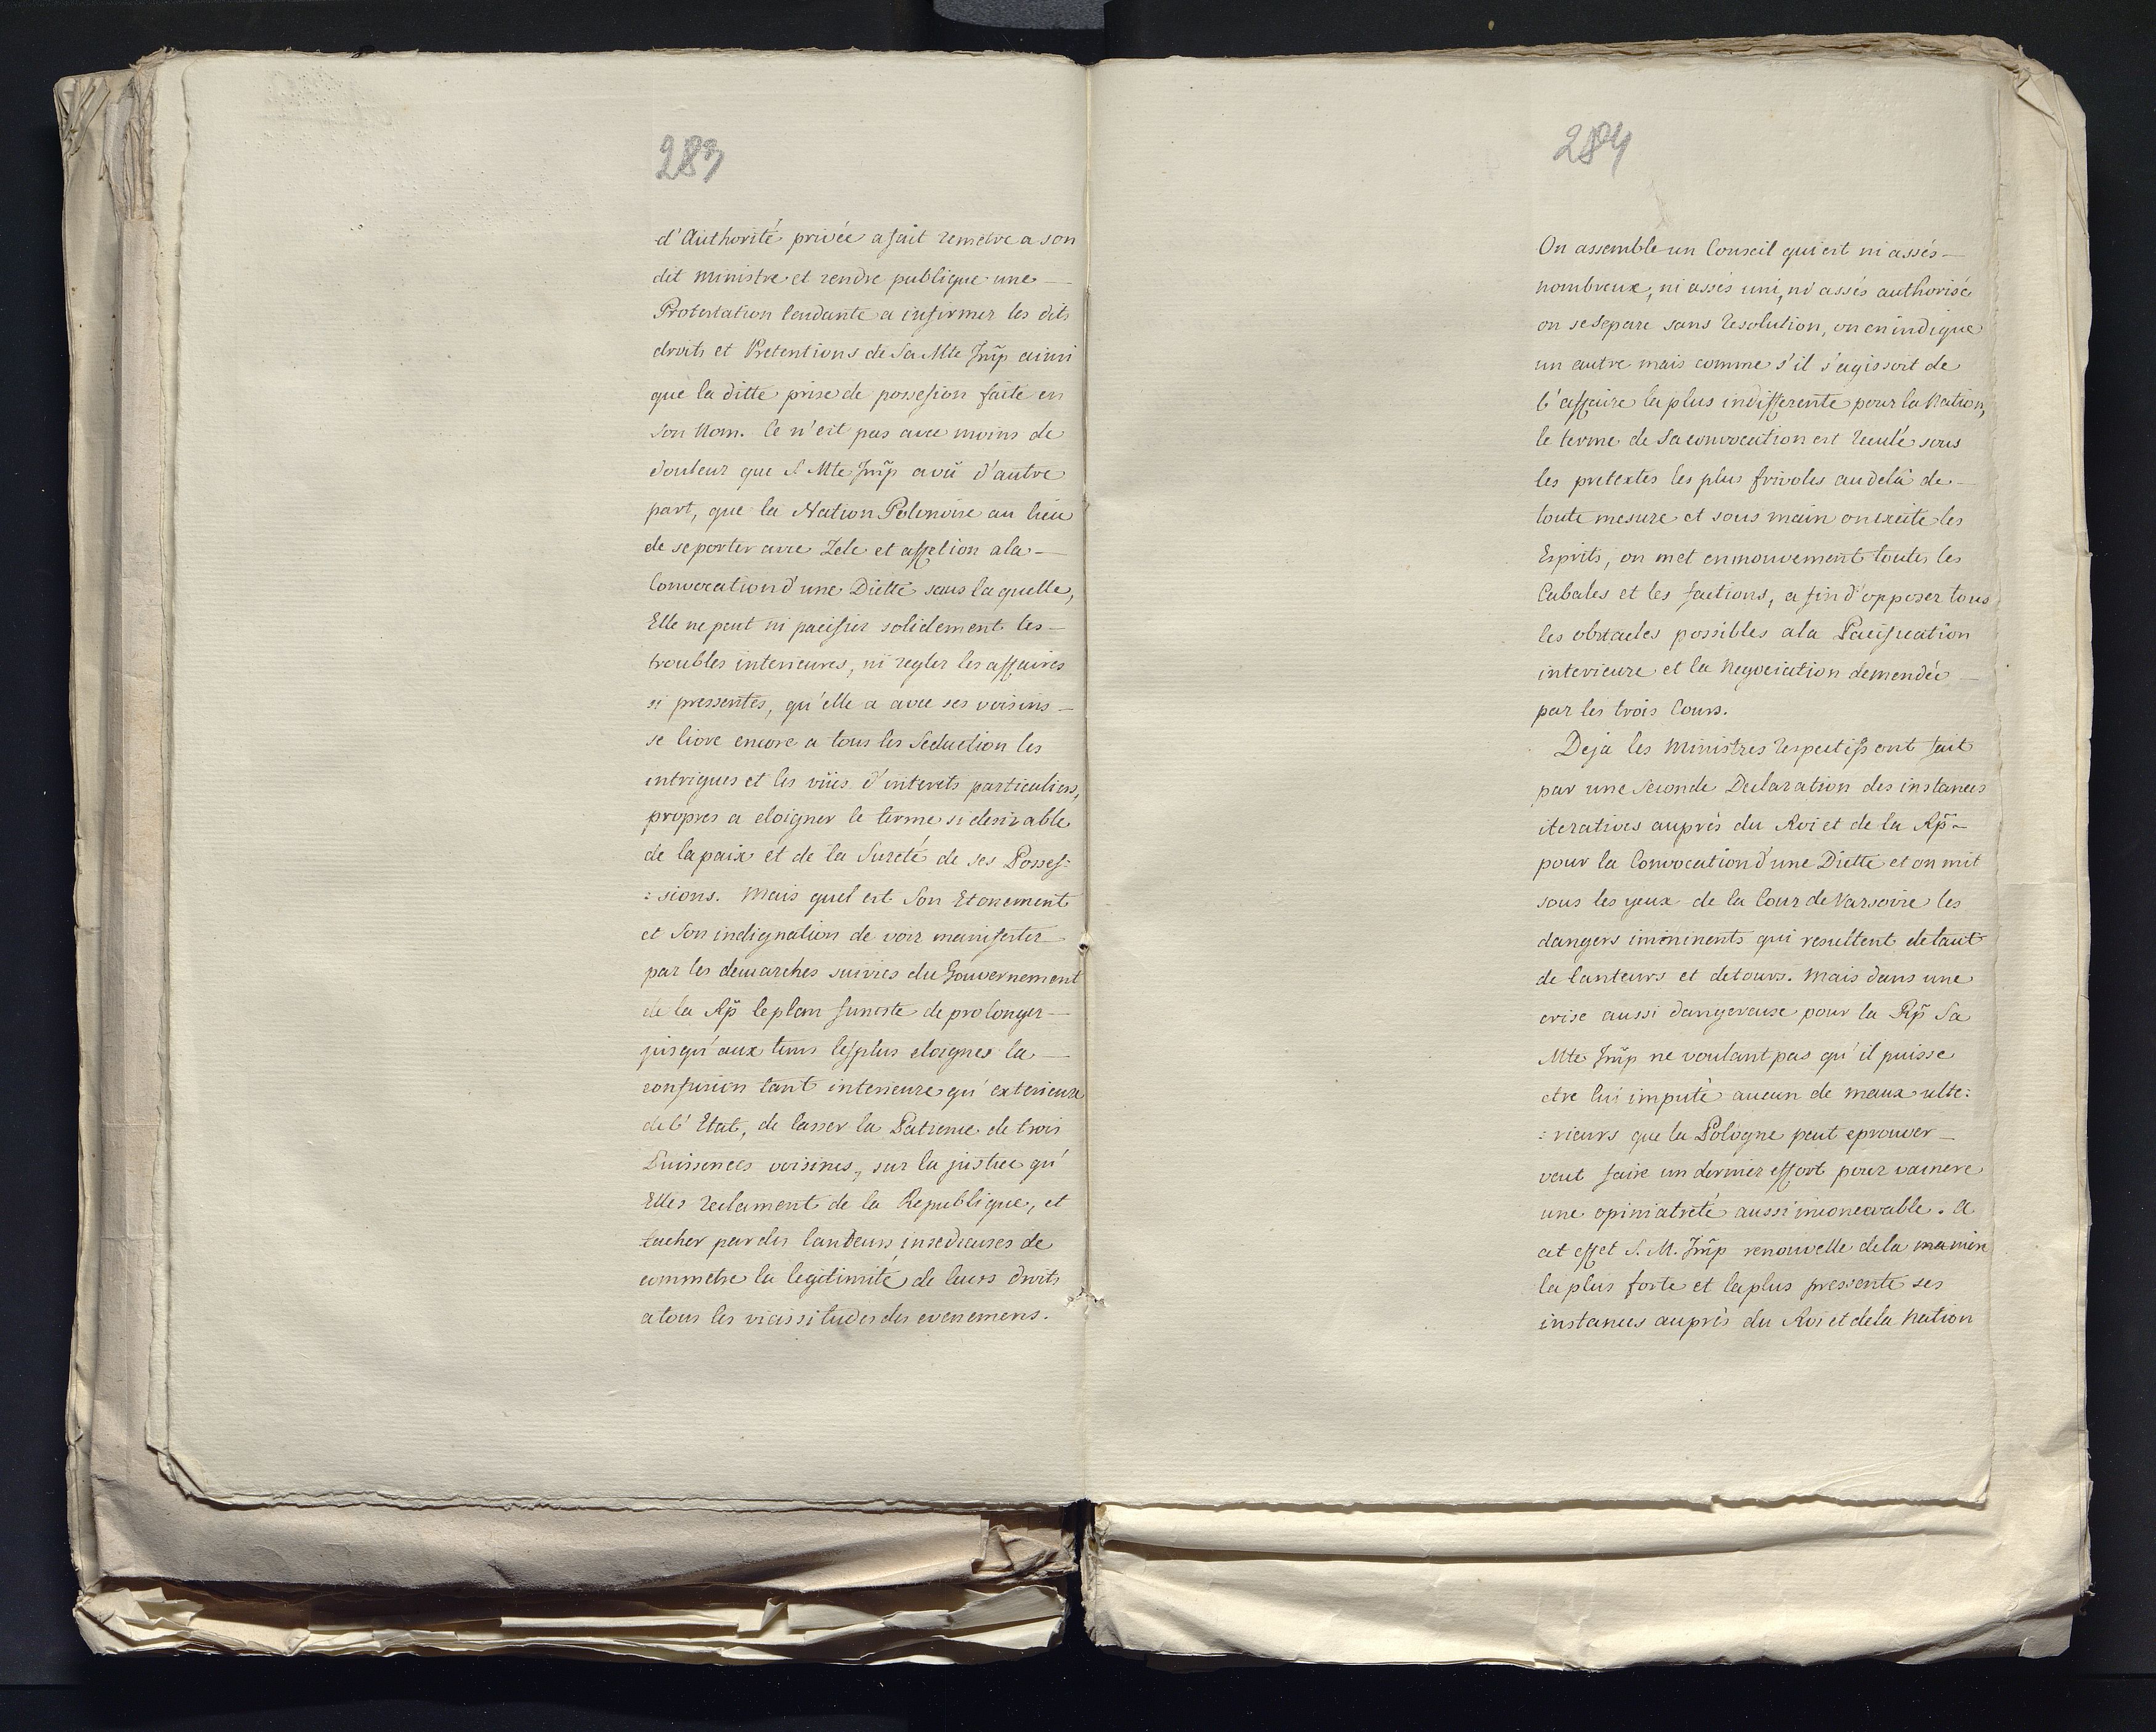 283
d'Authorité privée a fait remetre a son
dit Ministre et rendre publique une
Protestation tendante a infirmer les dits
droits et Pretentions de Sa Mte Imp̃ ainsi
que la ditte prise de possession faite en
son Nom. Ce n'est pas avec moins de
douleur que S Mte Imp̃ a vû d'autre
part, que la Nation Polonoise au lieu
de se porter avec Zele et affection a la
Convocation d'une Diette sans laquelle,
Elle ne peut ni pacifier solidement les
troubles interieures, ni regler les affaires
si pressentes, qu'elle a avec ses voisins
se livre encore a tous les Seduction les
intrigues et les vües d'interets particuliers,
propres a eloigner le terme si desirable
de la paix et de la Sureté de ses Posses:
:sions. Mais quel est Son Etonement
et Son indignation de voir manifester
par les demarches suivies du Gouvernement
de la Rp̃ le plan funeste de prolonger
jusqu'aux tems les plus eloignes la
confusion tant interieure qu'exterieure
de l'Etat, de lasser la Patience de trois
Puissences voisines, sur la justice qu'
Elles reclament de la Republique, et
tacher par des lanteurs insedieuses de
commetre la legitimité de leurs droits
a tous les vicissitudes des evenemens.
284
On assemble un Conseil qui est ni assés
nombreux, ni assés uni, ni assés authorisé
on se separe sans resolution, on en indique
un autre mais comme s'il s'agissoit de
l'affaire la plus indifferente pour la Nation,
le terme de Sa convocation est reculé sous
les pretextes les plus frivoles au delà de
toute mesure et sous main on excite les
Esprits, on met en mouvement toutes les
Cabales et les factions, a fin d'opposer tous
les obstacles possibles a la Pacification
interieure et la Negociation demendée
par les trois Cours.
Deja les Ministres respectifs ont fait
par une Seconde Declaration des instances
iteratives auprès du Roi et de la Rp̃
pour la Convocation d'une Diette et on mit
sous les yeux de la Cour de Varsovie les
dangers imminents qui resultent de tant
de lanteurs et detours. Mais dans une
crise aussi dangereuse pour la Rp̃ Sa
Mte Imp̃ ne voulant pas qu'il puisse
etre lui imputè aucun de maux ulte:
:rieurs que la Pologne peut eprouver
veut faire un dernier effort pour vaincre
une opiniatreté aussi inconcevable. A
cet effet S. M. Imp̃ renouvelle de la maniere
la plus forte et la plus pressente ses
instances auprès du Roi et de la Nation